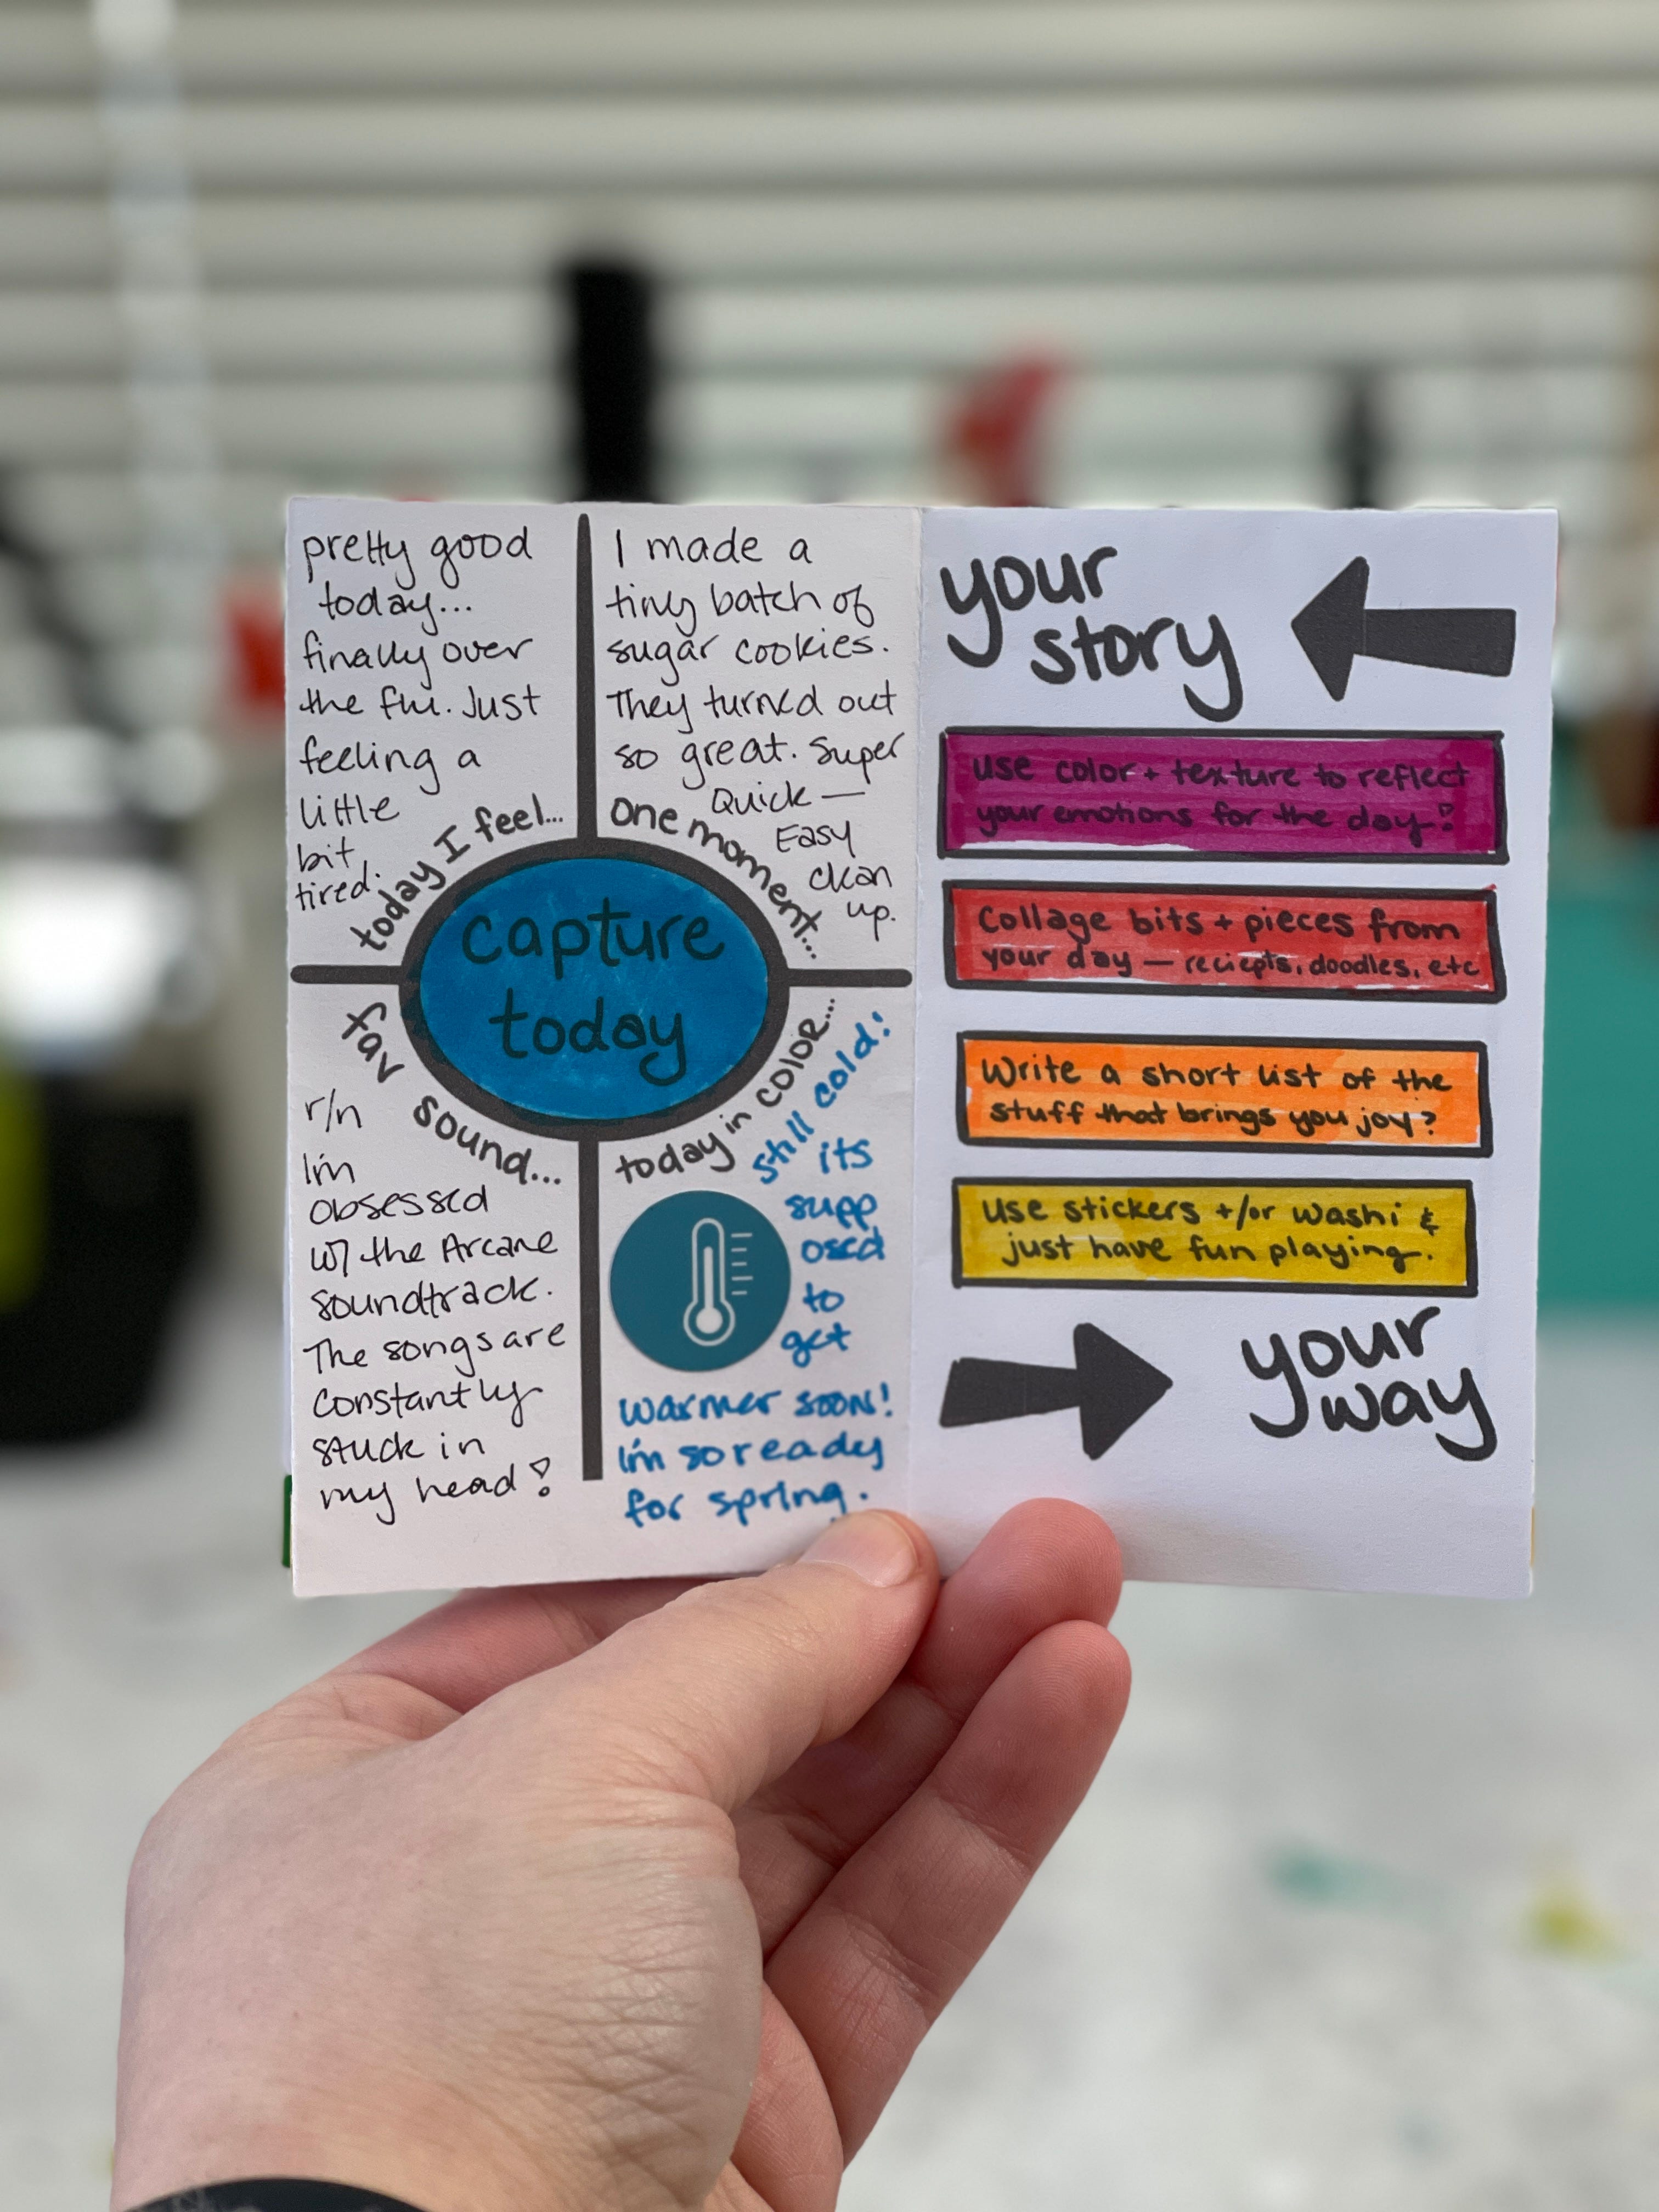 pretty good
today...
finally over
the flu. Just
feeling a
little
bit
tired.
today I feel...
I made a
tiny batch of
sugar cookies.
They turned out
so great. Super
Quick —
Easy
clean
up.
One moment...
capture
today
fav sound...
r/n
I'm
obsessed
w/ the Arcane
soundtrack.
The songs are
constantly
stuck in
my head!
today in color...
still cold!
its
supp
osed
to
get
warmer soon!
I'm so ready
for spring.
your
story
use color + texture to reflect
your emotions for the day!
Collage bits + pieces from
your day — reciepts, doodles, etc
Write a short list of the
stuff that brings you joy?
use stickers +/or washi &
just have fun playing.
your
way